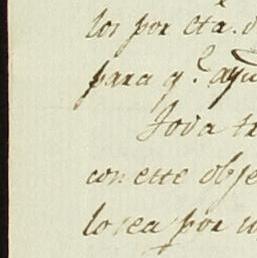 los por cta. d
para q.e ayu
Toda tr
con este obje
lo sea por u